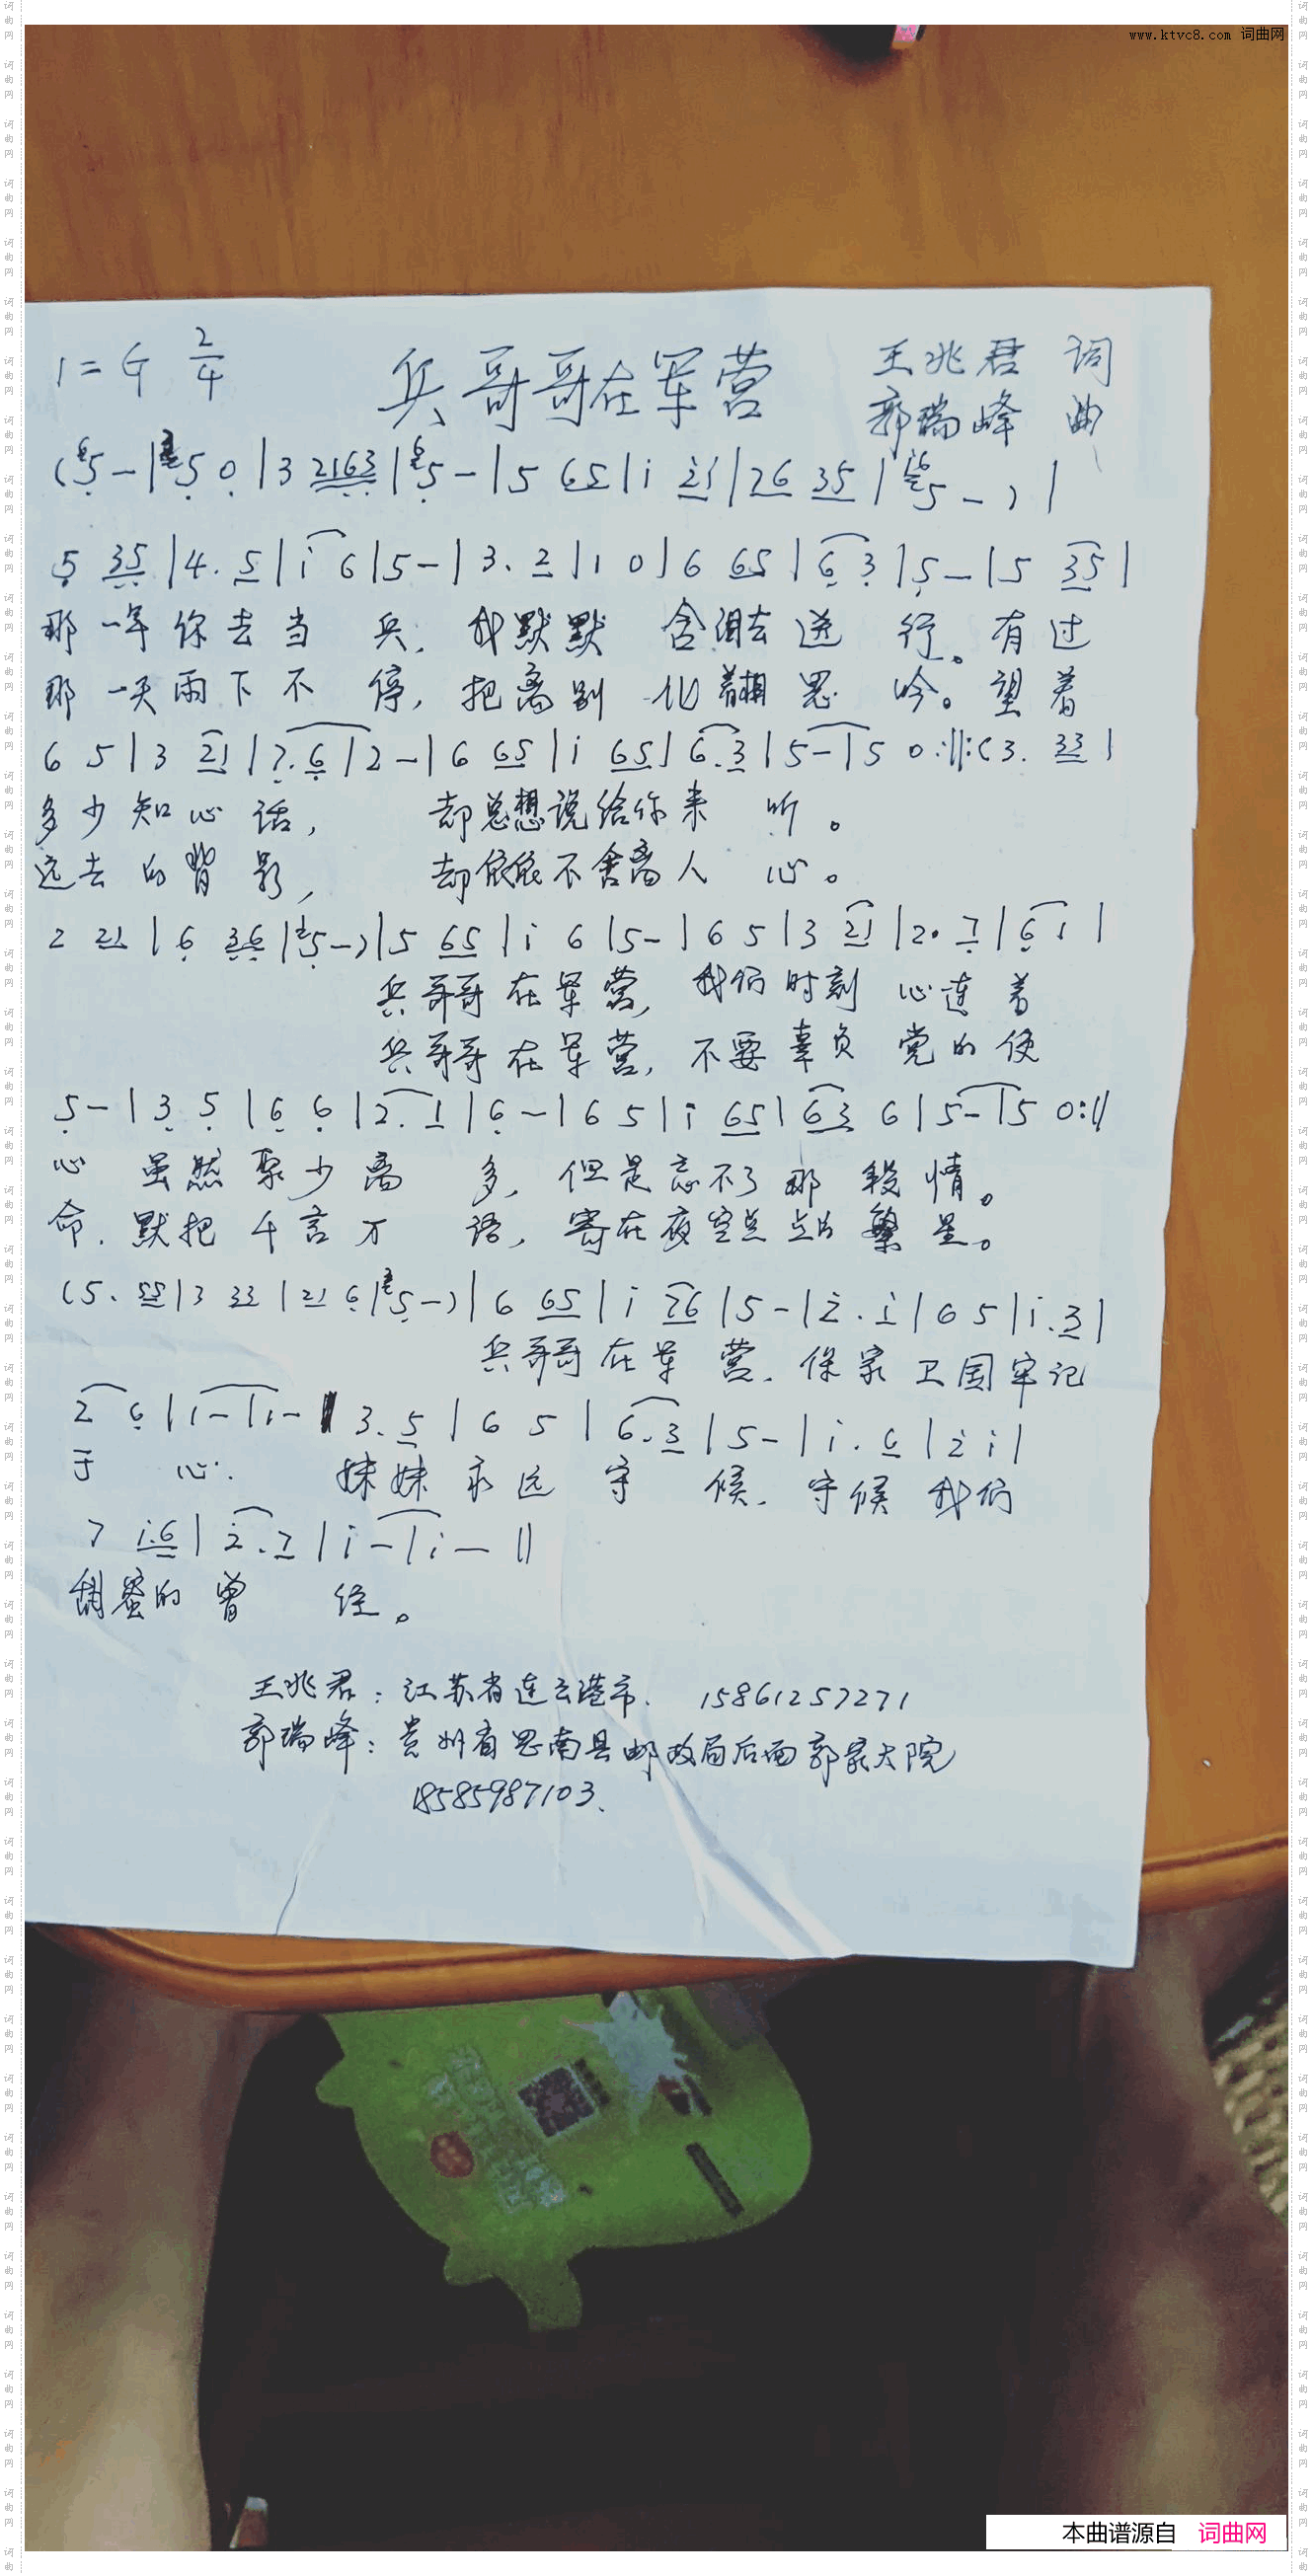 www.ktvc8.com 词曲网
1=G 2/4 兵哥哥在军营 王兆君 词
郭瑞峰 曲
(5-|5 0|3 2163|5-|5 65|i 2i|26 35|5-)|
5 35|4. 5|i 6|5-|3. 2|1 0|6 65|6 3|5-|5 35|
那一年你去当 兵, 我默默 含泪去送 行。有过
那一天雨下不 停, 把离别 化着相思 吟。望着
6 5|3 21|7. 6|2-|6 65|i 65|6. 3|5-|5 0:||:(3. 33|
多少知心话, 却总想说给你来 听。
远去的背影, 却依依不舍离人 心。
2 21|6 36|5-)|5 65|i 6|5-|6 5|3 21|2. 7|6 1|
兵哥哥在军营, 我们时刻 心连着
兵哥哥在军营, 不要辜负 党的使
5-|3 5|6 6|2. 1|6-|6 5|i 65|63 6|5-|5 0:||
心 虽然聚少离 多, 但是忘不了那 段情。
命. 默把千言万 语, 寄在夜空点点的繁星。
(5. 55|3 33|21 6|5-)|6 65|i 26|5-|2. i|6 5|i. 3|
兵哥哥在军营. 保家卫国牢记
2 6|1-|1-|3. 5|6 5|6. 3|5-|i. 6|2 i|
于 心. 妹妹永远守 候. 守候我们
7 i.6|2. 7|i-|i-||
甜蜜的曾 经。
王兆君: 江苏省连云港市. 15861257271
郭瑞峰: 贵州省思南县邮政局后面郭家大院
18585987103.
本曲谱源自 词曲网